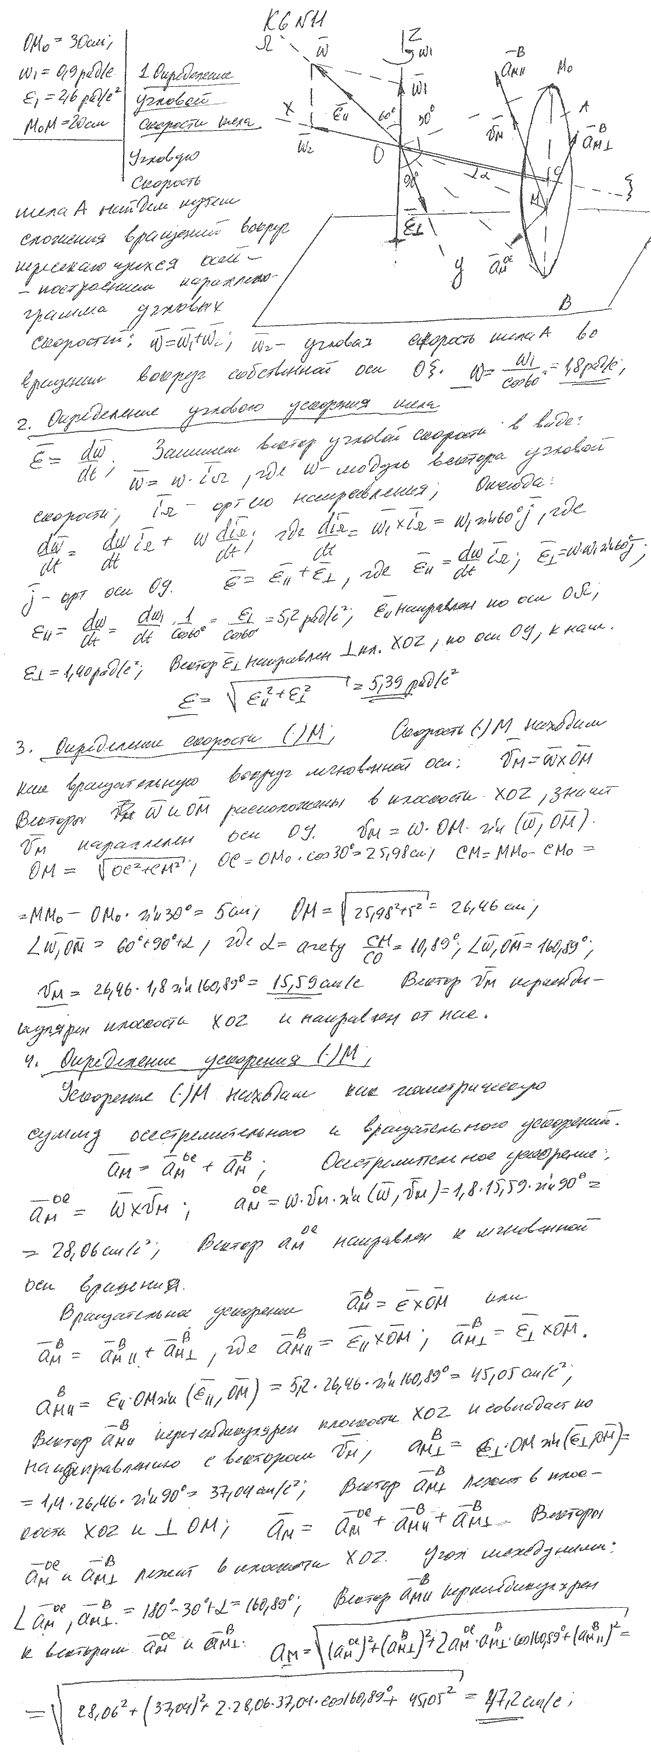 К6 N11
OM₀ = 30см;
ω₁ = 0,9 рад/с
ε₁ = 2,6 рад/с²
M₀M = 20см
1. Определение
угловой
скорости тела
Угловую
скорость
тела А найдем путем
сложения вращений вокруг
пересекающихся осей –
– построением параллело-
грамма угловых
скоростей: ω̄ = ω̄₁ + ω̄₂; ω̄₂ – угловая скорость тела А во
вращении вокруг собственной оси Oξ. ω = ω₁/cos60° = 1,8 рад/с;
Ω ω̄ Z ω₁ ω̄₁ ε̄ıı 60° 30° X ω̄₂ O 90° 2α ε̄⊥ y
āᴮмıı M₀ A v̄м āᴮм⊥ C M ξ āᵒᶜм B
2. Определение углового ускорения тела
ε̄ = dω̄/dt; Запишем вектор угловой скорости в виде:
ω̄ = ω · īΩ, где ω – модуль вектора угловой
скорости; īΩ – орт его направления; Отсюда:
dω̄/dt = dω/dt īΩ + ω dīΩ/dt; где dīΩ/dt = ω̄₁ × īΩ = ω₁ sin60° j̄, где
j̄ – орт оси Oy. ε̄ = ε̄ıı + ε̄⊥, где ε̄ıı = dω/dt īΩ; ε̄⊥ = ω ω₁ sin60° j̄;
εıı = dω/dt = dω₁/dt · 1/cos60° = ε₁/cos60° = 5,2 рад/с²; ε̄ıı направлен по оси OΩ;
ε⊥ = 1,40 рад/с²; Вектор ε̄⊥ направлен ⊥ пл. XOZ, по оси Oy, к нам.
ε = √(εıı² + ε⊥²) = 5,39 рад/с²
3. Определение скорости (·)M; Скорость (·)M находим
как вращательную вокруг мгновенной оси: v̄м = ω̄ × OM
Векторы ω̄ и OM расположены в плоскости XOZ, значит
v̄м параллелен оси Oy. vм = ω · OM · sin (ω̄, OM).
OM = √(OC² + CM²); OC = OM₀ · cos30° = 25,98см; CM = MM₀ – CM₀ =
= MM₀ – OM₀ · sin30° = 5см; OM = √(25,98² + 5²) = 26,46 см;
∠ω̄, OM = 60° + 90° + α, где α = arctg CM/CO = 10,89°; ∠ω̄, OM = 160,89°;
vм = 26,46 · 1,8 sin160,89° = 15,59 см/с Вектор v̄м перпенди-
кулярен плоскости XOZ и направлен от нас.
4. Определение ускорения (·)M;
Ускорение (·)M находим как геометрическую
сумму осестремительного и вращательного ускорений.
āм = āмᵒᶜ + āмᴮ; Осестремительное ускорение:
āмᵒᶜ = ω̄ × v̄м; aмᵒᶜ = ω · vм · sin (ω̄, v̄м) = 1,8 · 15,59 · sin90° =
= 28,06 см/с²; Вектор aмᵒᶜ направлен к мгновенной
оси вращения.
Вращательное ускорение āмᴮ = ε̄ × OM или
āмᴮ = āмııᴮ + āм⊥ᴮ, где āмııᴮ = ε̄ıı × OM; āм⊥ᴮ = ε̄⊥ × OM.
aмııᴮ = εıı · OM sin (ε̄ıı, OM) = 5,2 · 26,46 · sin160,89° = 45,05 см/с²;
Вектор āмııᴮ перпендикулярен плоскости XOZ и совпадает по
направлению с вектором v̄м; aм⊥ᴮ = ε⊥ · OM sin (ε̄⊥, OM) =
= 1,4 · 26,46 · sin90° = 37,04 см/с²; Вектор āм⊥ᴮ лежит в плос-
кости XOZ и ⊥ OM; āм = āмᵒᶜ + āмııᴮ + āм⊥ᴮ. Векторы
āмᵒᶜ и āм⊥ᴮ лежат в плоскости XOZ. Угол между ними:
∠ āмᵒᶜ, āм⊥ᴮ = 180° – 30° + α = 160,89°; Вектор āмııᴮ перпендикулярен
к векторам āмᵒᶜ и āм⊥ᴮ. aм = √((aмᵒᶜ)² + (aм⊥ᴮ)² + 2aмᵒᶜ · aм⊥ᴮ · cos160,89° + (aмııᴮ)²) =
= √(28,06² + (37,04)² + 2 · 28,06 · 37,04 · cos160,89° + 45,05²) = 47,2 см/с;